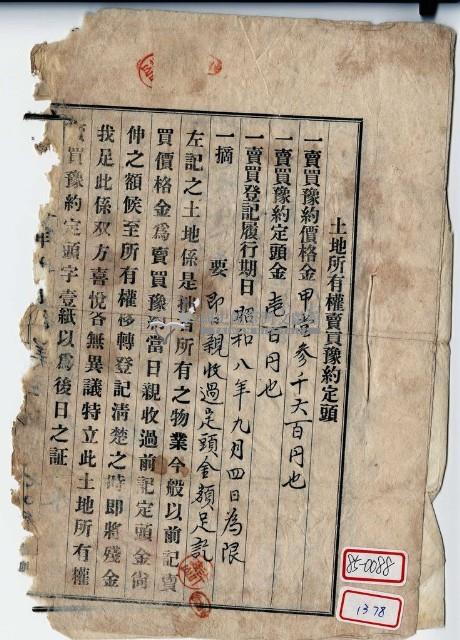 土地所有權賣買豫約定頭
一賣買豫約價格金 甲當参千六百円也
一賣買豫約定頭金 壱百円也
一賣買登記履行期日 昭和八年九月四日為限
一摘要 即日親收過定頭金額足訖
左記之土地係是拙者所有之物業今般以前記賣
買價格金為賣買豫約當日親收過前記定頭金尚
伸之額候至所有權移轉登記清楚之時即將殘金
我足此係双方喜悅各無異議特立此土地所有權
賣買豫約定頭字壹紙以為後日之証
85-0088
1378